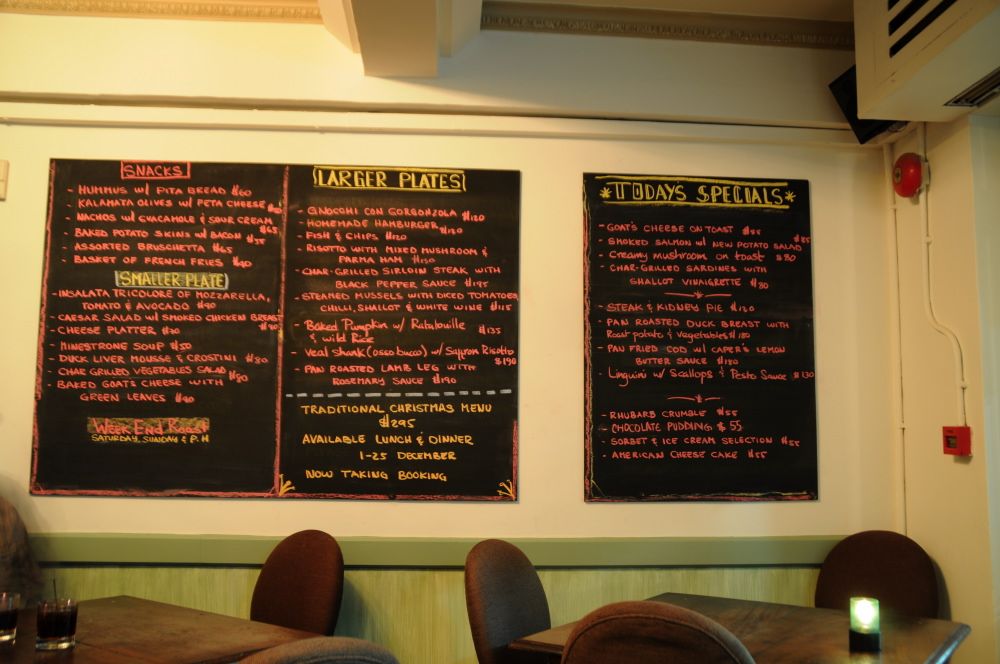 SNACKS
- HUMMUS w/ PITA BREAD $60
- KALAMATA OLIVES w/ FETA CHEESE
- NACHOS w/ GUACAMOLE & SOUR CREAM $65
- BAKED POTATO SKINS w/ BACON $55
- ASSORTED BRUSCHETTA $65
- BASKET OF FRENCH FRIES $40
SMALLER PLATE
- INSALATA TRICOLORE OF MOZZARELLA,
TOMATO & AVOCADO $90
- CAESAR SALAD w/ SMOKED CHICKEN BREAST
$90
- CHEESE PLATTER
- MINESTRONE SOUP $50
- DUCK LIVER MOUSSE & CROSTINI $80
- CHAR GRILLED VEGETABLES SALAD $80
- BAKED GOATS CHEESE WITH
GREEN LEAVES $90
WEEK END ROAST
SATURDAY, SUNDAY & P.H
LARGER PLATES
- GNOCCHI CON GORGONZOLA $120
- HOMEMADE HAMBURGER $120
- FISH & CHIPS $120
- RISOTTO WITH MIXED MUSHROOM &
PARMA HAM $130
- CHAR-GRILLED SIRLOIN STEAK WITH
BLACK PEPPER SAUCE $195
- STEAMED MUSSELS WITH DICED TOMATOES,
CHILLI, SHALLOT & WHITE WINE $115
- Baked Pumpkin w/ Ratatouille
& wild Rice $135
- Veal shank (osso bucco) w/ Saffron Risotto
$190
- PAN ROASTED LAMB LEG WITH
ROSEMARY SAUCE $190
TRADITIONAL CHRISTMAS MENU
$295
AVAILABLE LUNCH & DINNER
1-25 DECEMBER
NOW TAKING BOOKING
*TODAY'S SPECIALS*
- GOAT'S CHEESE ON TOAST $55
- SMOKED SALMON w/ NEW POTATO SALAD $85
- Creamy mushroom on toast $80
- CHAR-GRILLED SARDINES WITH
SHALLOT VINAIGRETTE $80
- STEAK & KIDNEY PIE $120
- PAN ROASTED DUCK BREAST WITH
Roast potato & Vegetables $180
- PAN FRIED COD w/ CAPER'S LEMON
BUTTER SAUCE $180
- Linguini w/ Scallops & Pesto Sauce $130
- RHUBARB CRUMBLE $55
- CHOCOLATE PUDDING $ 55
- SORBET & ICE CREAM SELECTION $55
- AMERICAN CHEESE CAKE $55